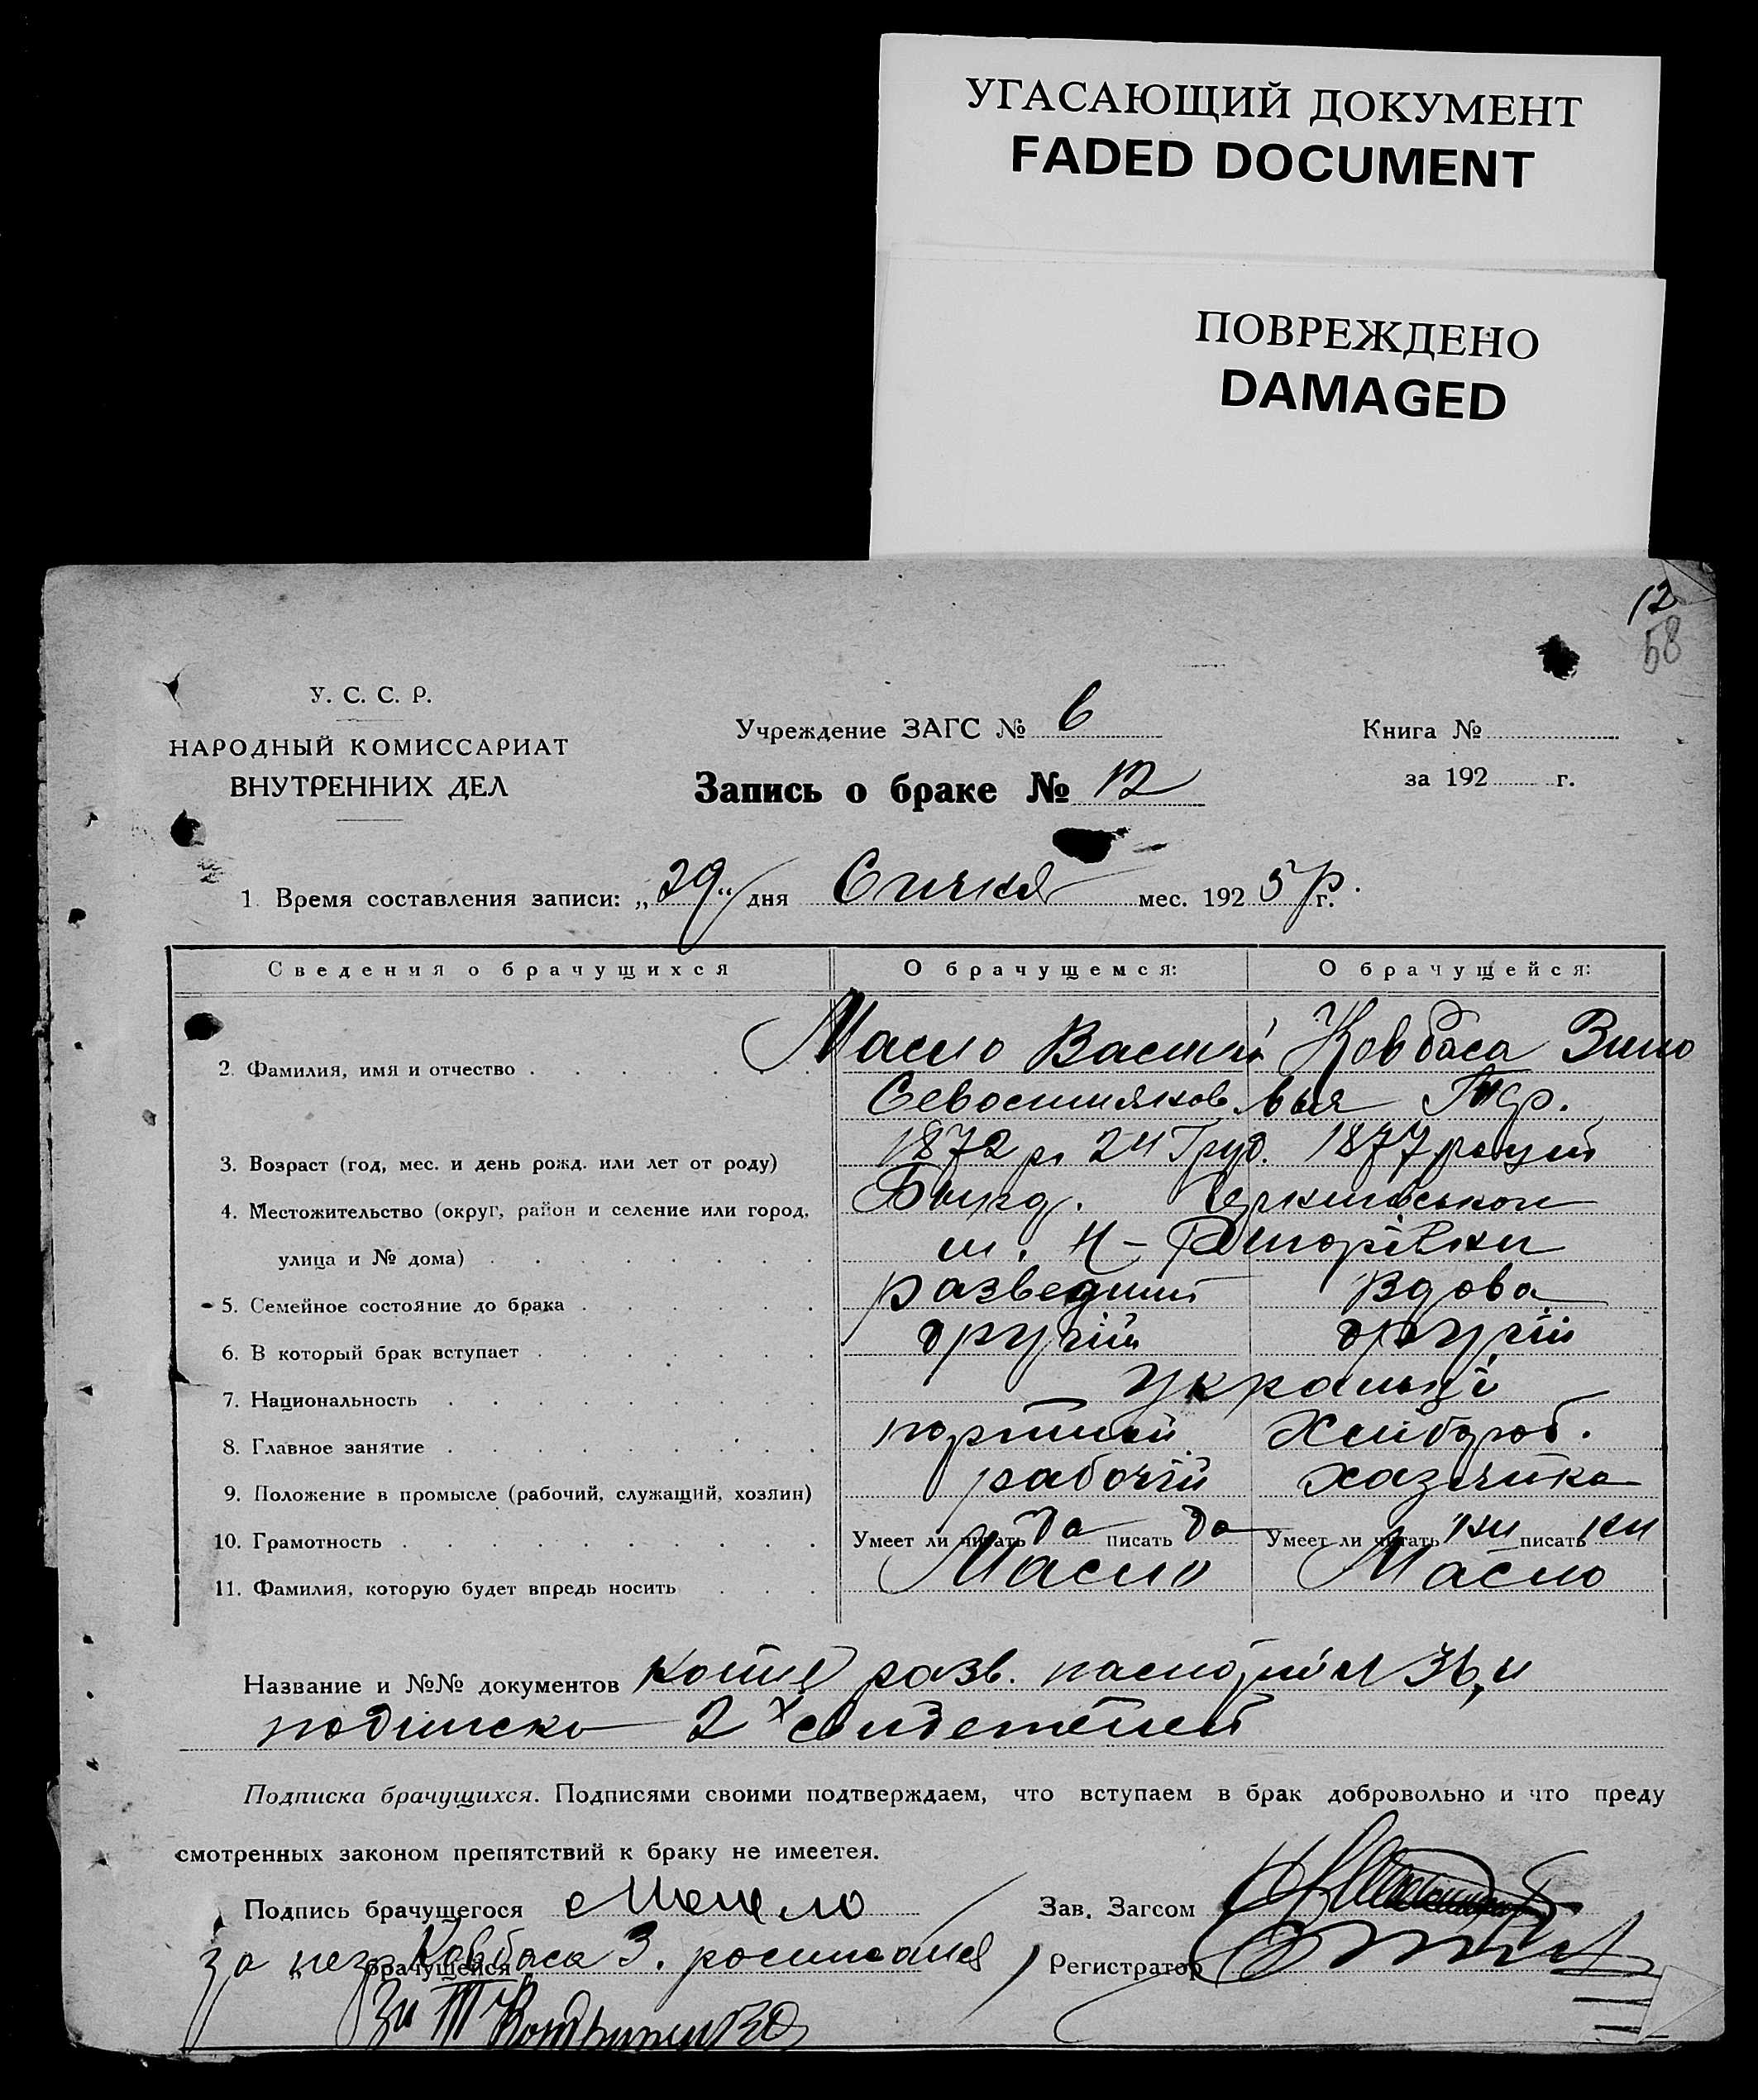 УГАСАЮЩИЙ ДОКУМЕНТ
FADED DOCUMENT
ПОВРЕЖДЕНО
DAMAGED
12
58
У. С. С. Р.
НАРОДНЫЙ КОМИССАРИАТ
ВНУТРЕННИХ ДЕЛ
Учреждение ЗАГС № 6
Запись о браке № 12
Книга №
за 192 г.
1. Время составления записи: „29“ дня Січня мес. 1925 р. г.
Сведения о брачущихся О брачущемся: О брачущейся:
2. Фамилия, имя и отчество Масло Василий Ковбаса Зино
Севостиянов. вия
3. Возраст (год, мес. и день рожд. или лет от роду) 1872 р. 24 Груд. 1877
4. Местожительство (округ, район и селение или город,
улица и № дома)
5. Семейное состояние до брака разведений Вдова
6. В который брак вступает другий другий
7. Национальность Украінці
8. Главное занятие портний Хлібороб.
9. Положение в промысле (рабочий, служащий, хозяин) рабочій хазяйка
10. Грамотность Умеет ли читать да писать да Умеет ли читать ни писать ни
11. Фамилия, которую будет впредь носить Масло Масло
Название и №№ документов разв.
подписка 2х свидетелей
Подписка брачущихся. Подписями своими подтверждаем, что вступаем в брак добровольно и что преду
смотренных законом препятствий к браку не имеетея.
Подпись брачущегося Масло Зав. Загсом
за Ковбаса З. росписался
„ брачущейся Регистратор